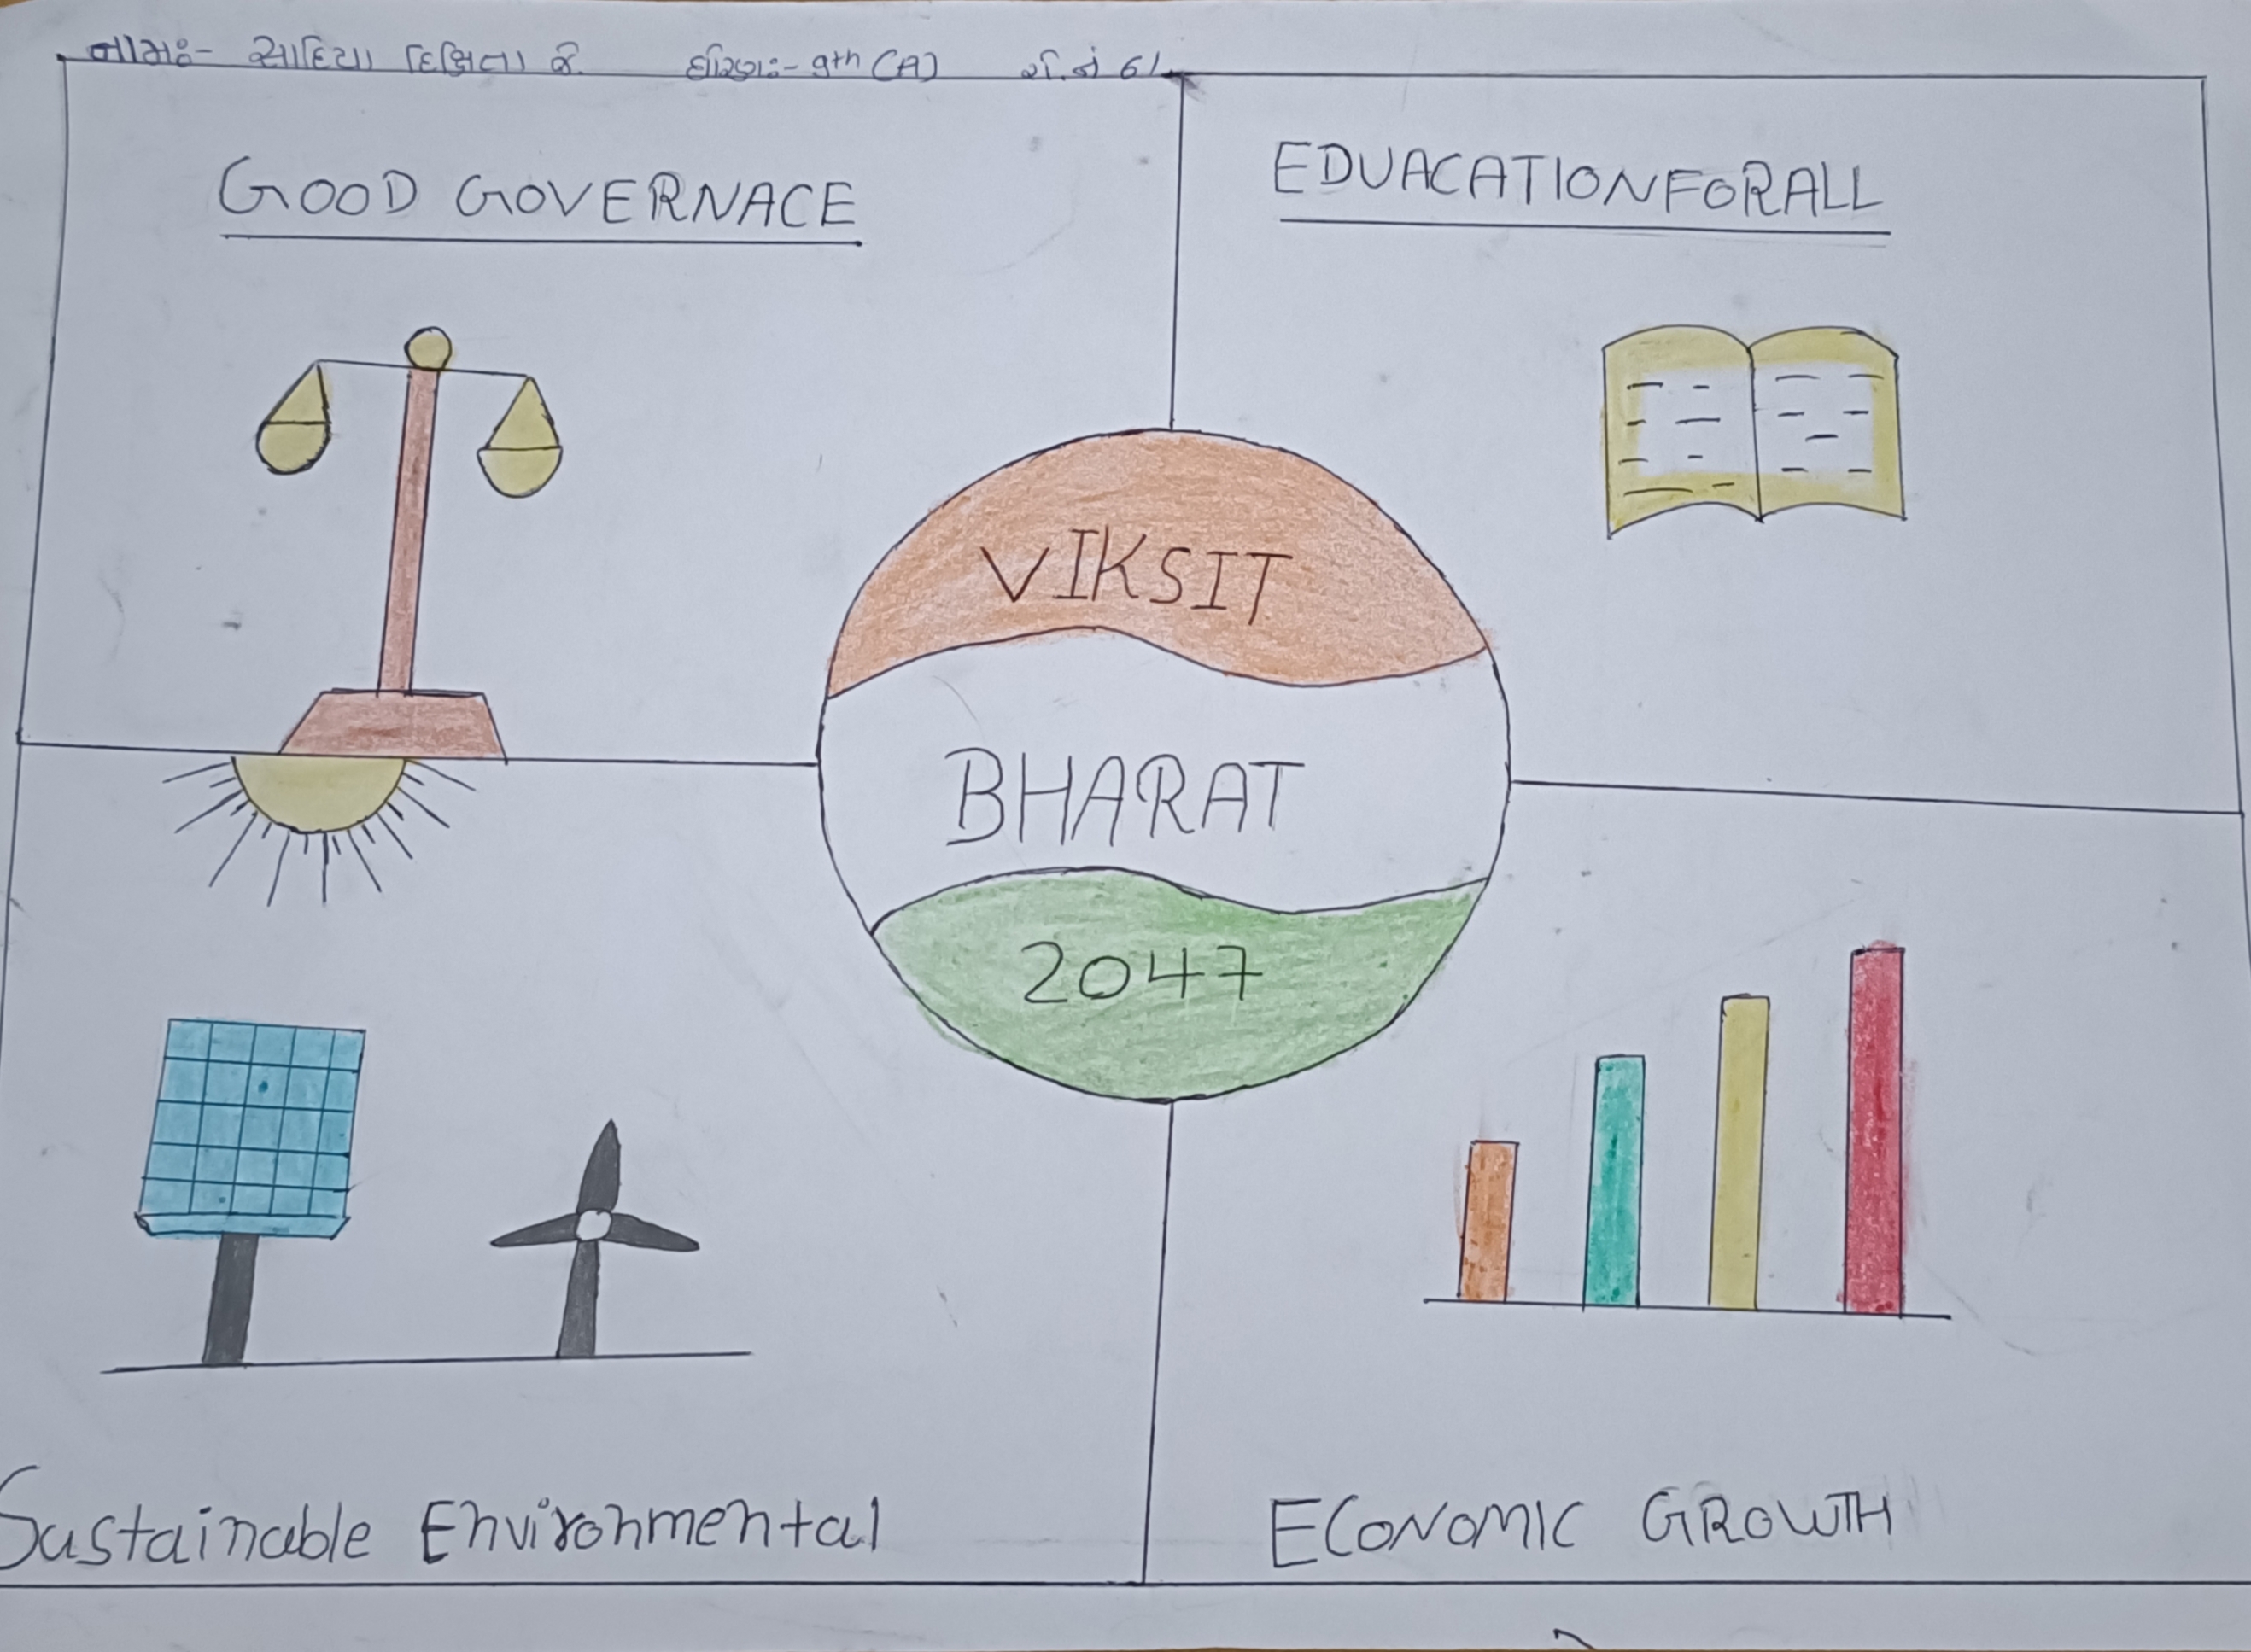 નામઃ- સાદિયા દિક્ષિતા જે. ધોરણઃ- 9th (A) રો.નં 61
GOOD GOVERNACE
EDUACATIONFORALL
VIKSIT
BHARAT
2047
Sustainable Environmental
ECONOMIC GROWTH